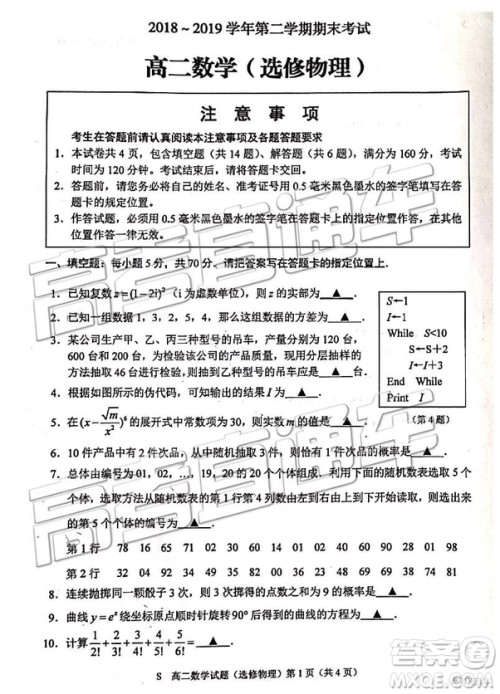 2018～2019学年第二学期期末考试
高二数学（选修物理）
注 意 事 项
考生在答题前请认真阅读本注意事项及各题答题要求
1. 本试卷共4页，包含填空题（共14题）、解答题（共6题），满分为160分，考试
时间为120分钟。考试结束后，请将答题卡交回。
2. 答题前，请您务必将自己的姓名、准考证号用0.5毫米黑色墨水的签字笔填写在答题
卡的规定位置。
3. 作答试题，必须用0.5毫米黑色墨水的签字笔在答题卡上的指定位置作答，在其它
位置作答一律无效。
一、填空题：每小题5分，共70分。请把答案写在答题卡的指定位置上．
1. 已知复数z=(1-2i)²（i为虚数单位），则z的实部为 ▲ ．
2. 已知一组数据1，0，2，1，4，那么这组数据的方差为 ▲ ．
3. 某公司生产甲、乙、丙三种型号的吊车，产量分别为120台，
600台和200台，为检验该公司的产品质量，现用分层抽样的
方法抽取46台进行检验，则抽到乙种型号的吊车应是 ▲
4. 根据如图所示的伪代码，可知输出的结果I为 ▲ ．
S←1
I←1
While S<10
S←S+2
I←I+3
End While
Print I
（第4题）
5. 在(x-√m/x²)⁶的展开式中常数项为30，则实数m的值是 ▲
6. 10件产品中有2件次品，从中随机抽取3件，则恰有1件次品的概率是 ▲ ．
7. 总体由编号为01，02，…，19，20的20个个体组成，利用下面的随机数表选取5个
个体，选取方法从随机数表的第1行第4列数由左到右由上到下开始读取，则选出来
的第5个个体的编号为 ▲ ．
第1行 78 16 65 71 02 30 60 14 01 02 40 60 90 28 01 98
第2行 32 04 92 34 49 35 82 00 36 23 48 69 69 38 74 81
8. 连续抛掷同一颗骰子3次，则3次掷得的点数之和为9的概率是 ▲ ．
9. 曲线y=eˣ绕坐标原点顺时针旋转90°后得到的曲线的方程为 ▲ ．
10. 计算1/2!+2/3!+3/4!+4/5!+5/6!= ▲ ．
S 高二数学试题（选修物理）第1页（共4页）
高考直通车